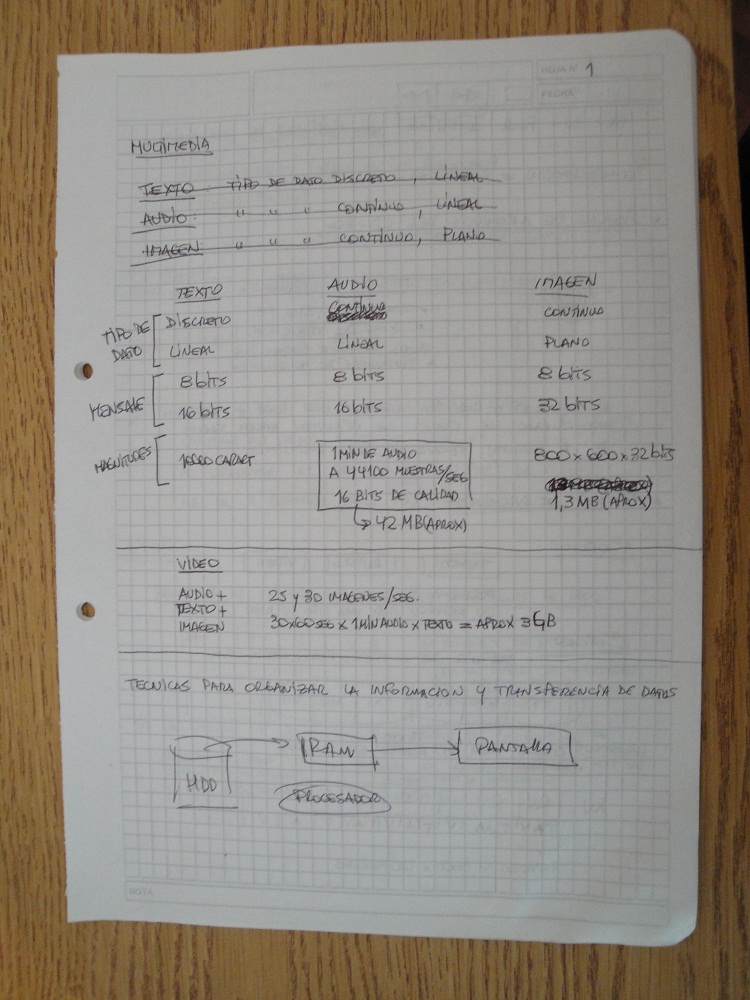 HOJA Nº 1
FECHA
MULTIMEDIA
TEXTO: TIPO DE DATO DISCRETO, LINEAL
AUDIO: " " " CONTINUO, LINEAL
IMAGEN " " " CONTINUO, PLANO
TEXTO AUDIO IMAGEN
TIPO DE DATO
DISCRETO CONTINUO CONTINUO
LINEAL LINEAL PLANO
MENSAJE
8 bits 8 bits 8 bits
16 bits 16 bits 32 bits
MAGNITUDES
10000 CARACT
1 MIN DE AUDIO
A 44100 MUESTRAS/SEG
16 BITS DE CALIDAD
42 MB (APROX)
800 x 600 x 32 bits
1,3 MB (APROX)
VIDEO
AUDIO + 25 y 30 IMAGENES/SEG.
TEXTO +
IMAGEN 30x60 SEG x 1 MIN AUDIO x TEXTO = APROX 3 GB
TECNICAS PARA ORGANIZAR LA INFORMACION Y TRANSFERENCIA DE DATOS
HDD RAM PANTALLA
PROCESADOR
NOTA